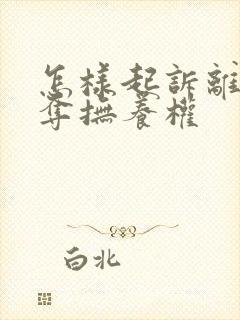 怎樣起訴離
奪撫養權
白北